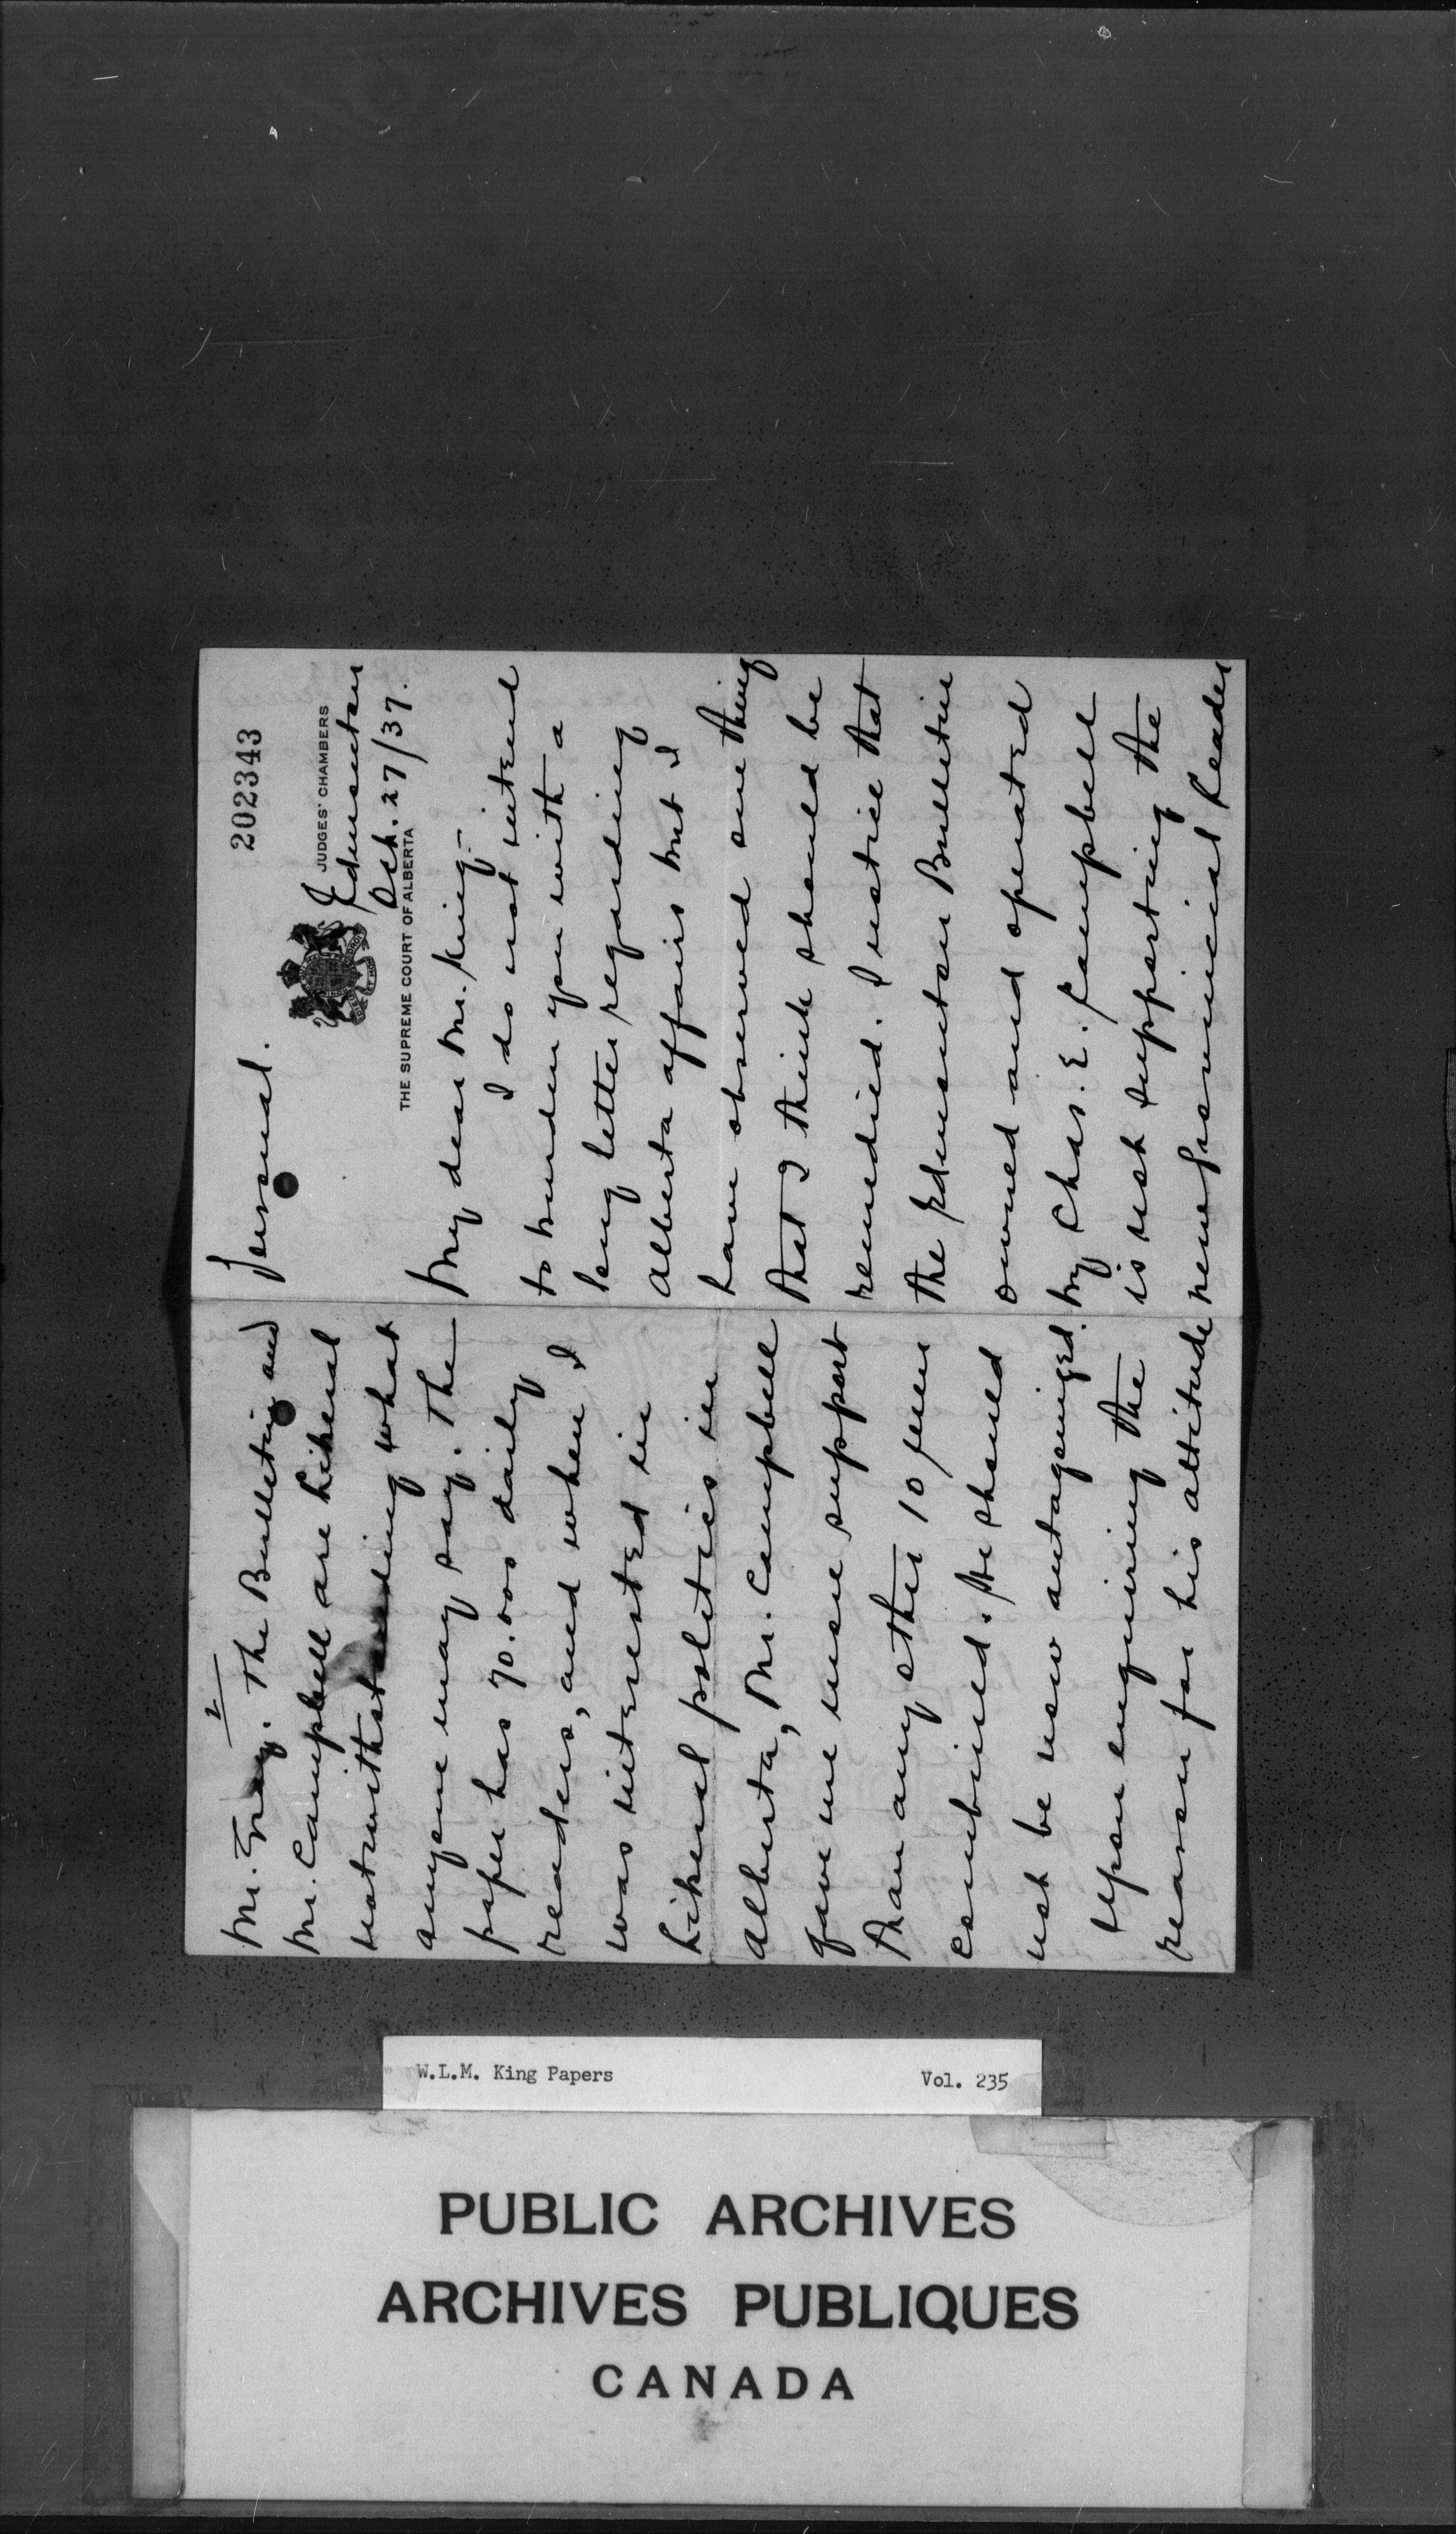 202343
Personal.
JUDGES' CHAMBERS
THE SUPREME COURT OF ALBERTA
Edmonton
Oct. 27/37.
My dear Mr. King-
I do not intend
to burden you with a
long letter regarding
Alberta affairs but I
have observed one thing
that I think should be
remedied. I notice that
the Edmonton Bulletin
owned and operated
by Chas. E. Campbell
is not supporting the
new Provincial Leader
2
Mr. Gray. The Bulletin and
Mr. Campbell are Liberal
notwithstanding what
anyone may say. The
paper has 70.000 daily
readers, and when I
was interested in
Liberal politics in
Alberta, Mr. Campbell
gave me more support
than any other 10 men
combined. He should
not be now antagonized.
Upon enquiring the
reason for his attitude
W.L.M. King Papers
Vol. 235
PUBLIC ARCHIVES
ARCHIVES PUBLIQUES
CANADA